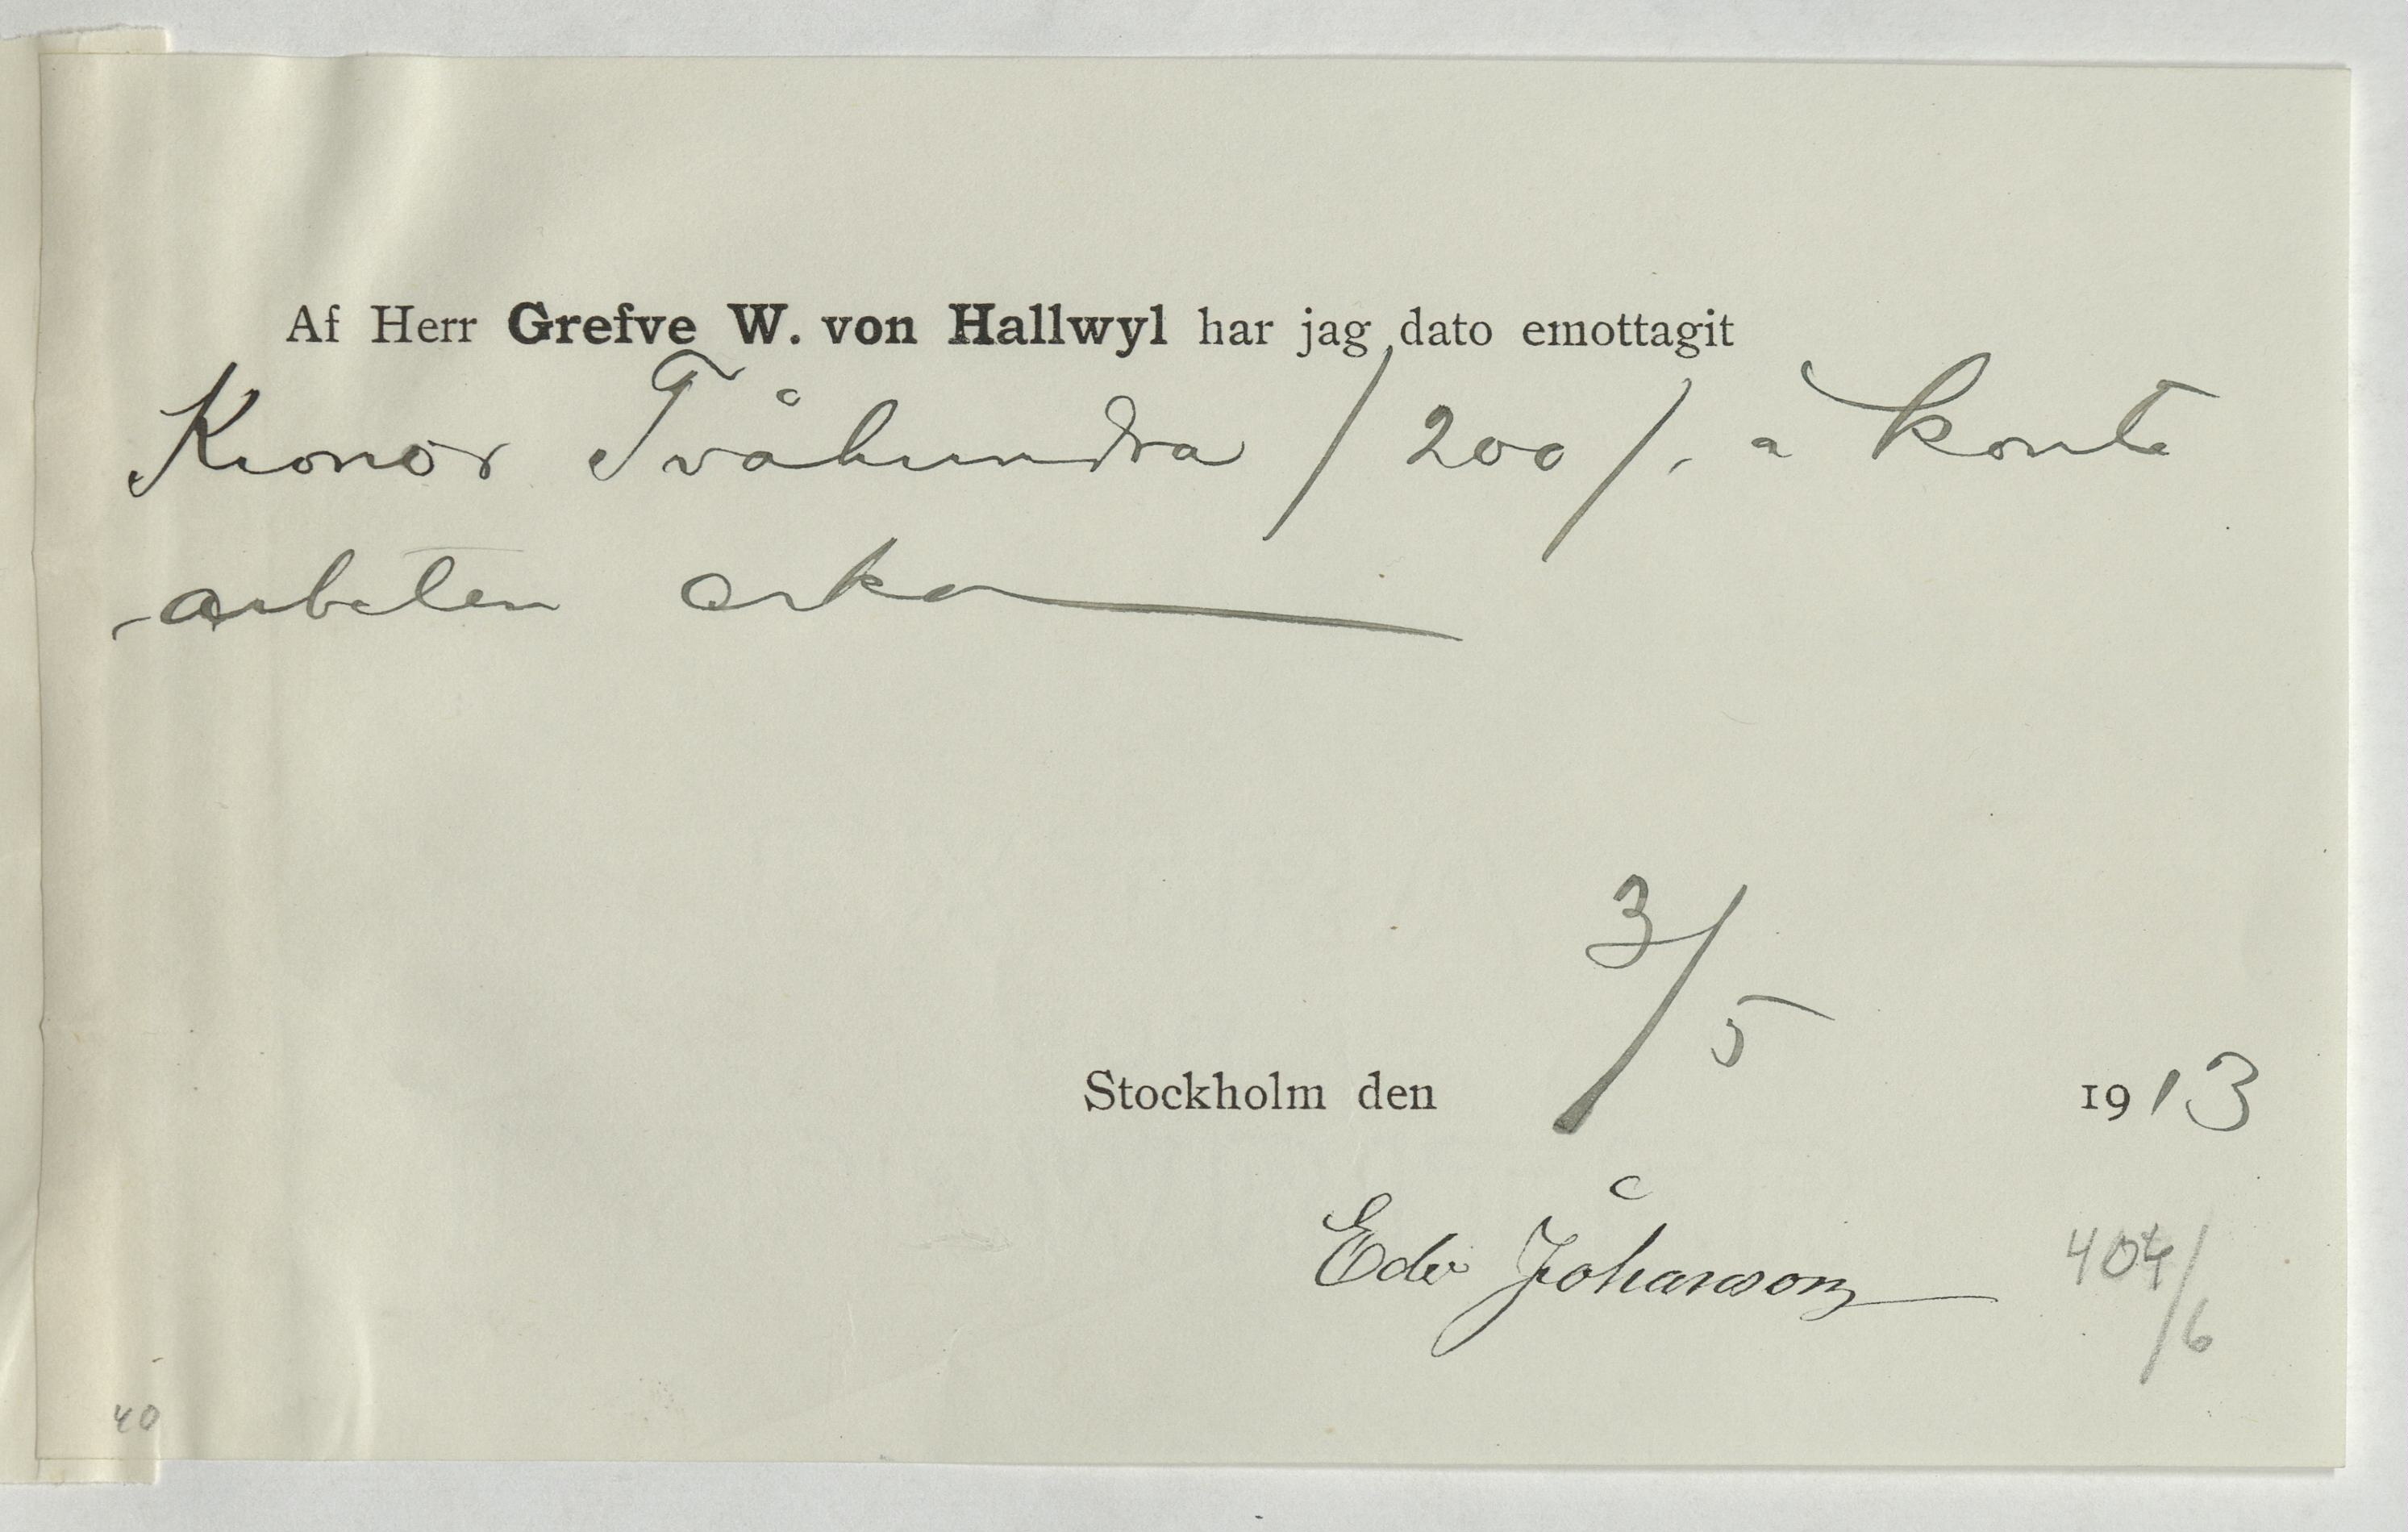 Af Herr Grefve W. von Hallwyl har jag dato emottagit
Kronor Tvåhundra / 200 /. a konto
arbeten
3/5
Stockholm den 1913
Johansson
404/6
40